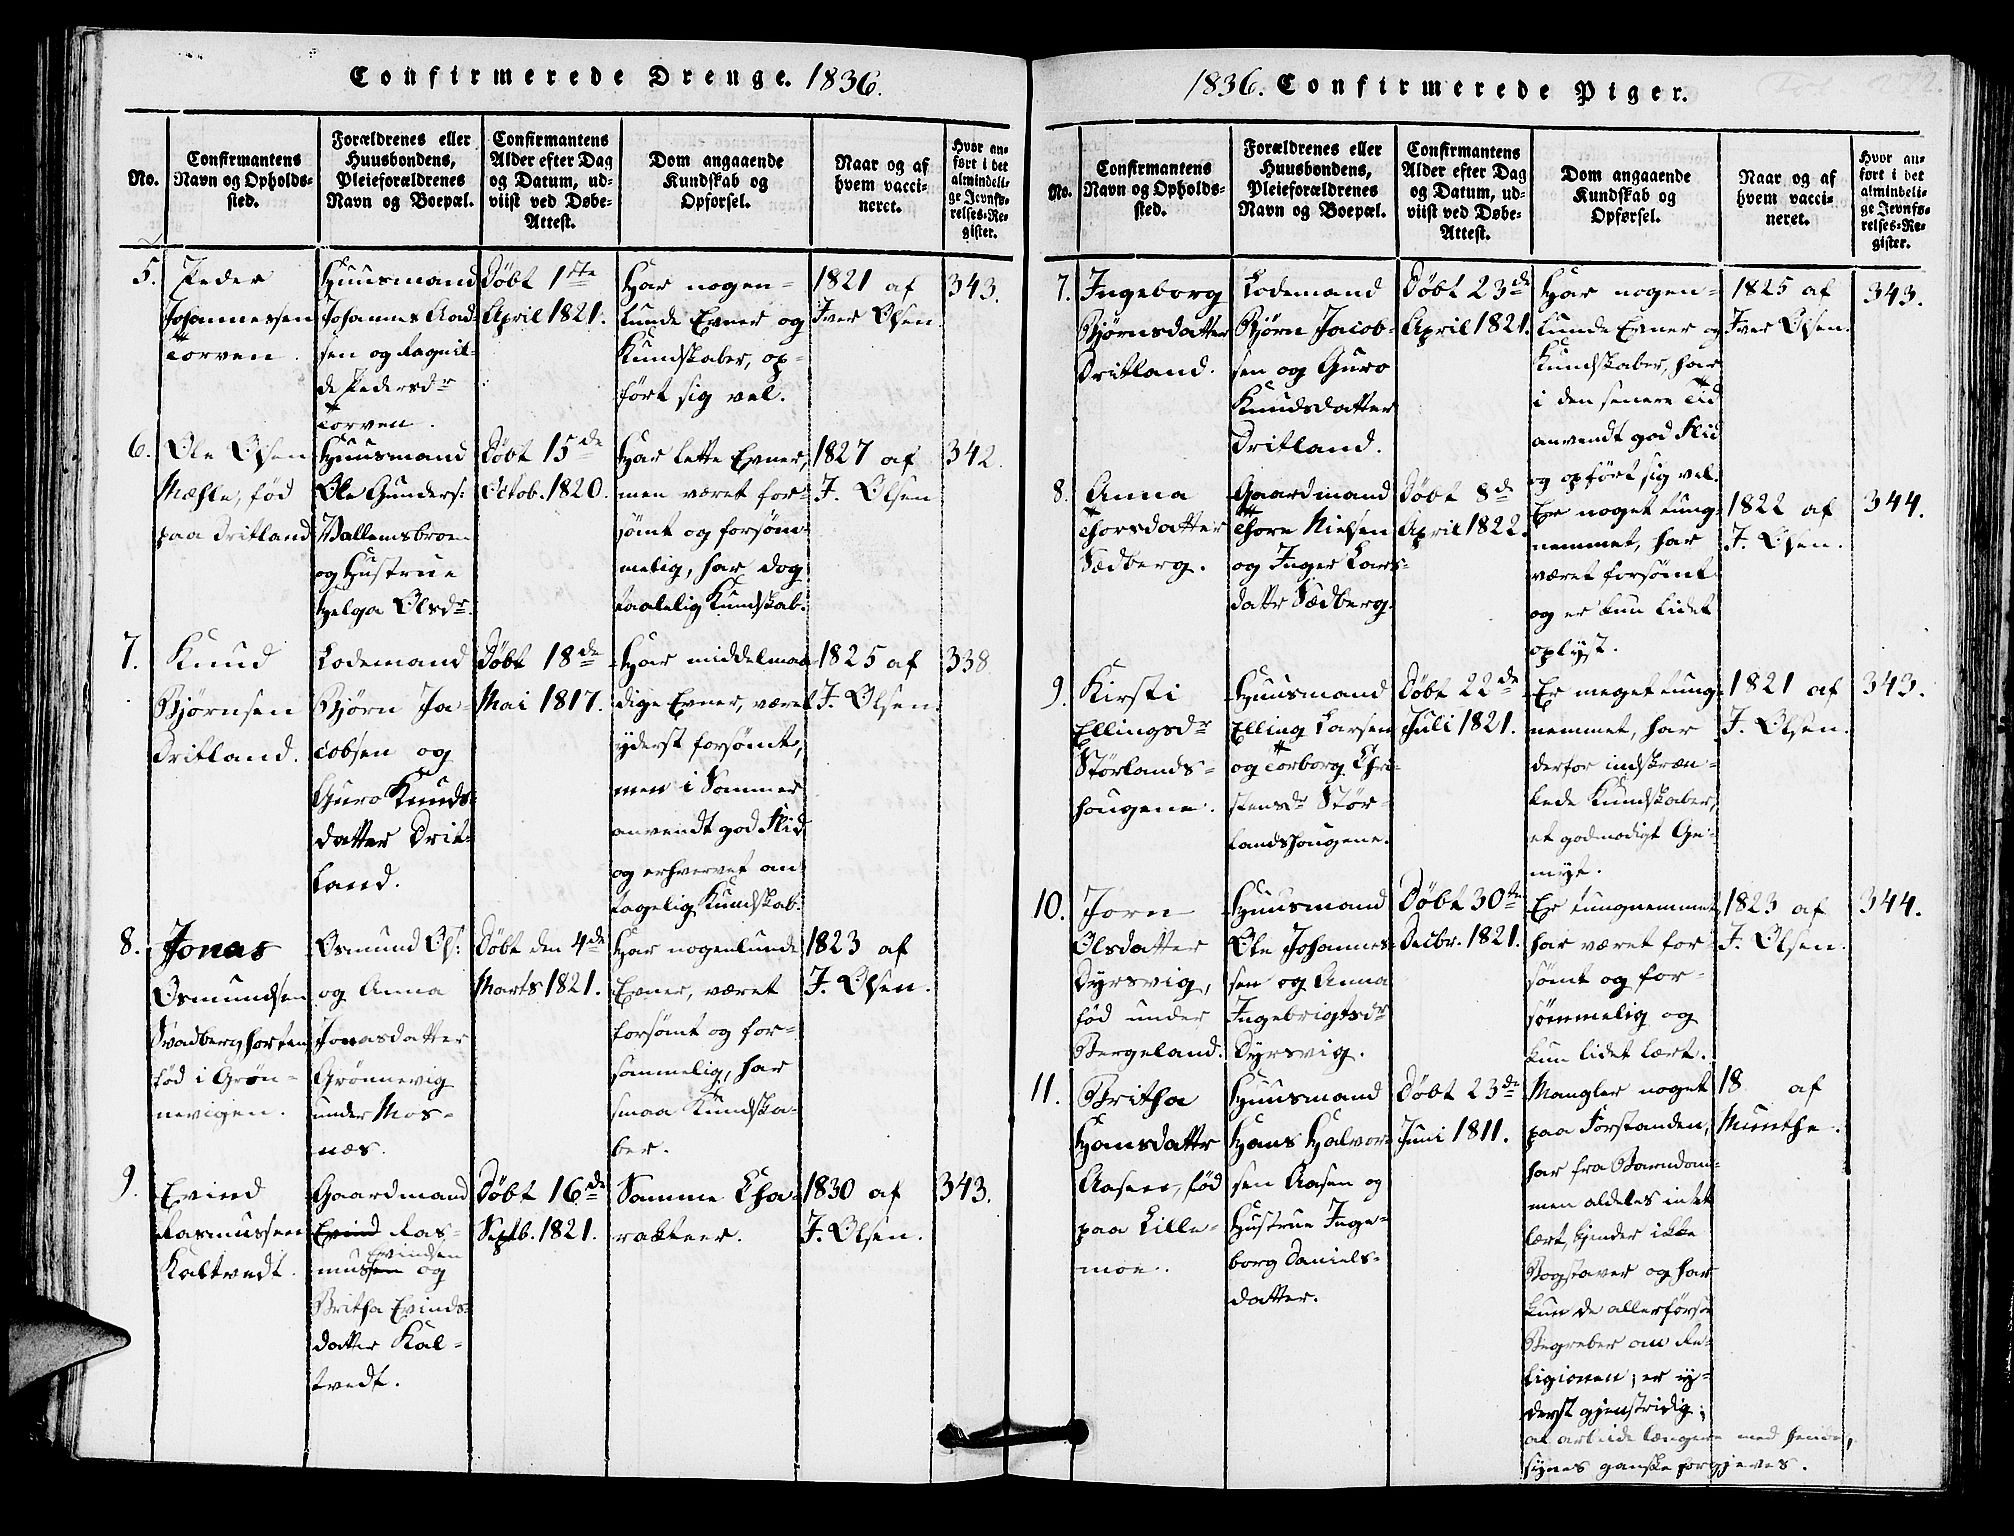 Confirmerede Drenge. 1836.
No.
Confirmantens
Navn og Opholds-
sted.
Forældrenes eller
Huusbondens,
Pleieforældrenes
Navn og Boepæl.
Confirmantens
Alder efter Dag
og Datum, ud-
viist ved Døbe-
Attest.
Dom angaaende
Kundskab og
Opførsel.
Naar og af
hvem vacci-
neret.
Hvor an-
ført i det
almindeli-
ge Jevnfø-
relses-Re-
gister.
5.
Peder
Johannessen
Torven.
Huusmand
Johannes Aad-
sen og Ragnil-
de Pedersdr
Torven.
Døbt 1ste
April 1821.
Har nogen-
lunde Evner og
Kundskaber, op-
ført sig vel.
1821 af
Iver Olsen.
343.
6.
Ole Olsen
Mæhle, fød
paa Dritland
Huusmand
Ole Gunders:
Wallemsbroen
og Hustrue
Helga Olsdr.
Døbt 15de
Octob. 1820.
Har lette Evner,
men været for-
sømt og forsøm-
melig, har dog
taalelig Kundskab.
1827 af
J. Olsen
342.
7.
Knud
Bjørnsen
Dritland.
Lodsmand
Bjørn Ja-
cobsen og
Guro Knuds-
datter Drit-
land.
Døbt 18de
Mai 1817.
Har middelmaa-
dige Evner, været
yderst forsømt,
men i Sommer
anvendt god Flid
og erhvervet an-
tagelig Kundskab.
1825 af
J. Olsen.
338
8.
Jonas
Osmundsen
Svadberg, horten
fød i Grøn-
nevigen.
Osmund Ols:
og Anna
Jonasdatter
Grønnevig
under Mos-
næs.
Døbt den 4de
Marts 1821.
Har nogenlunde
Evner, været
forsømt og for-
sømmelig, har
smaa Kundska-
ber.
1823 af
J. Olsen.
9.
Evind
Rasmussen
Kaltvedt.
Gaardmand
Evind Ras-
Evindsen
mussen og
Britha Evinds-
datter Kal-
tvedt.
Døbt 16de
Septb. 1821.
Samme Cha-
rakteer.
1830 af
J. Olsen.
343.
1836. Confirmerede Piger.
No.
Confirmantens
Navn og Opholds-
sted.
Forældrenes eller
Huusbondens,
Pleieforældrenes
Navn og Boepæl.
Confirmantens
Alder efter Dag
og Datum, ud-
viist ved Døbe-
Attest.
Dom angaaende
Kundskab og
Opførsel.
Naar og af
hvem vacci-
neret.
Hvor an-
ført i det
almindeli-
ge Jevnfø-
relses-Re-
gister.
7.
Ingeborg
Bjørnsdatter
Dritland.
Lodsmand
Bjørn Jacob-
sen og Guro
Knudsdatter
Dritland.
Døbt 23de
April 1821.
Har nogen-
lunde Evner og
Kundskaber, har
i den senere Tid
anvendt god Flid
og opført sig vel.
1825 af
Iver Olsen.
343.
8.
Anna
Thorsdatter
Sædberg.
Gaardmand
Thore Nielsen
og Inger Lars-
dattr Sædberg.
Døbt 8de
April 1822.
Er noget tung-
nemmet, har
været forsømt
og er kun lidet
oplyst.
1822 af
J. Olsen.
344.
9.
Kirsti
Ellingsdr
Størlands-
hougene.
Huusmand
Elling Larsen
og Torborg Chri-
stensdr Stør-
landshougene.
Døbt 22de
Juli 1821.
Er meget tung-
nemmet, har
derfor indskræn-
kede Kundskaber,
et godmodigt Ge-
myt.
1821 af
J. Olsen.
343.
10.
Jorn
Olsdatter
Dyrsvig,
fød under
Bergeland.
Huusmand
Ole Johannes-
sen og Anna
Ingebrigtsdr
Dyrsvig.
Døbt 30te
Decbr. 1821.
Er tungnemmet,
har været for-
sømt og for-
sømmelig og
kun lidet lært.
1823 af
J. Olsen.
344.
11.
Britha
Hansdattr
Aasen, fød
paa Lille-
moe.
Huusmand
Hans Halvor-
sen Aasen og
Hustrue Inge-
borg Daniels-
datter.
Døbt 23de
Juni 1811.
Mangler noget
paa Forstanden,
har fra Barndom-
men aldeles intet
lært, kjender ikke
Bogstaver og har
kun de allerførste
Begreber om Re-
ligionen; er y-
derst gjenstridig;
at arbeide længere med hende,
synes ganske forgjeves.
18 af
Munthe.